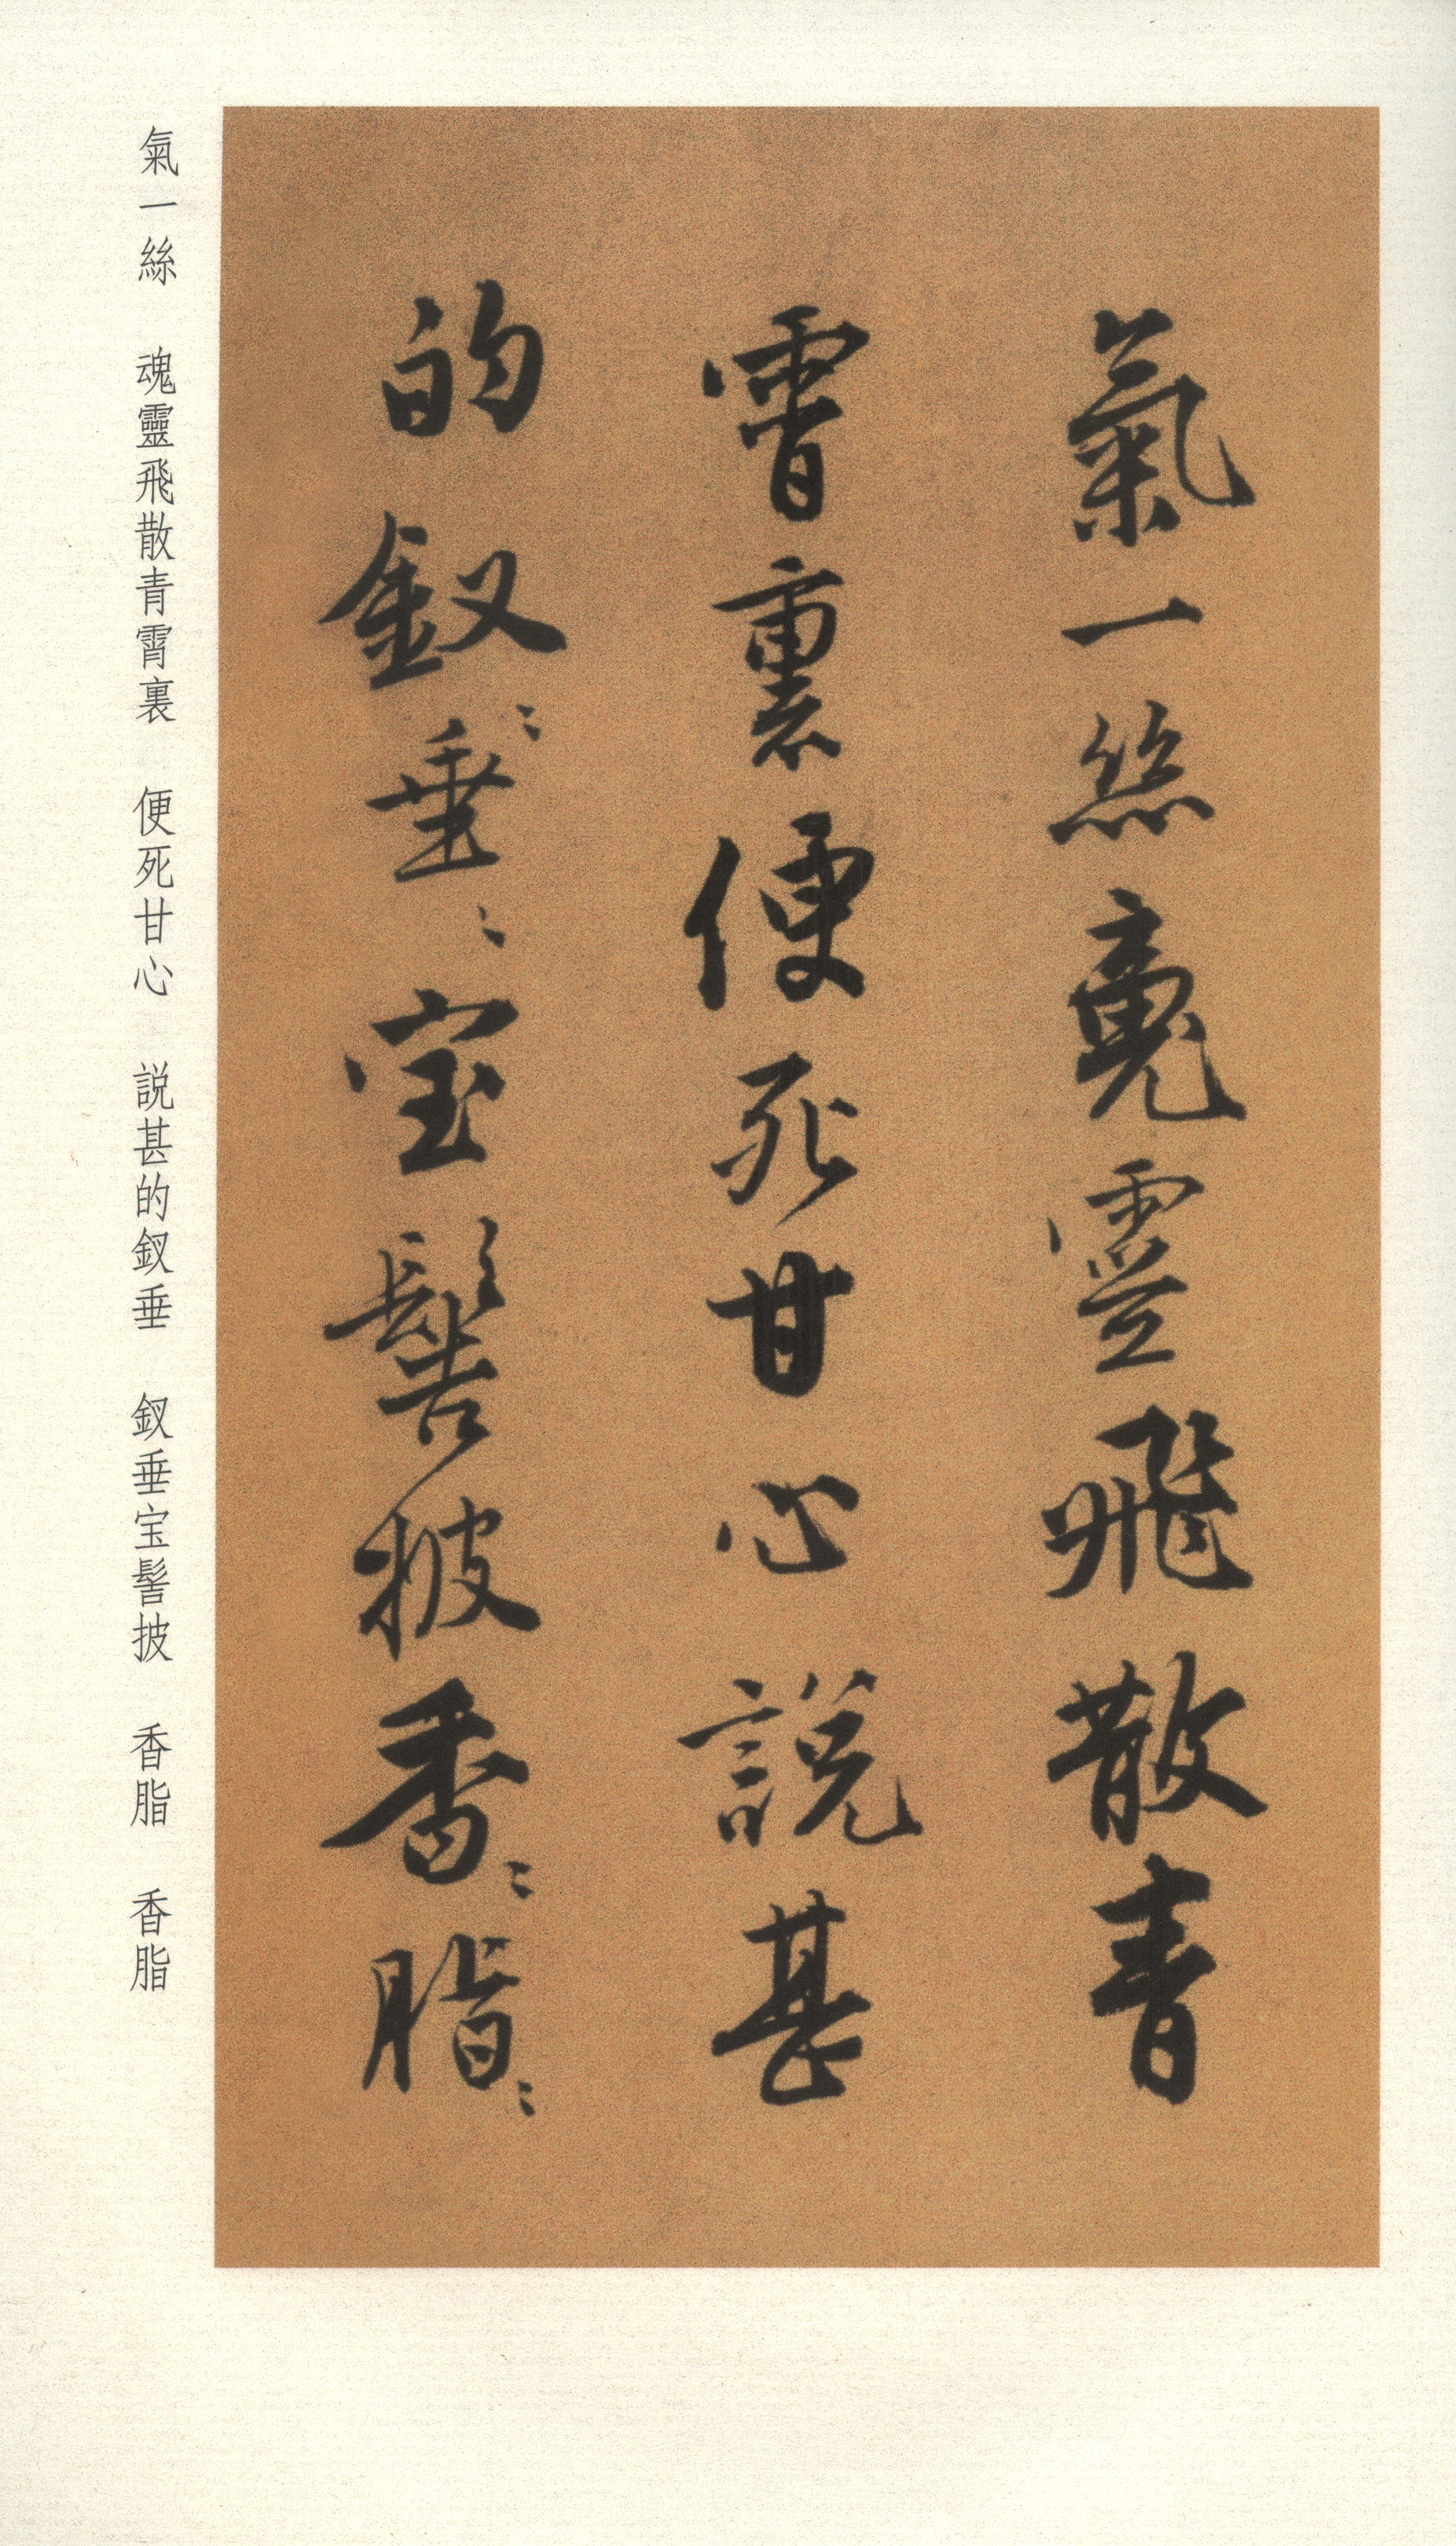 氣一絲魂靈飛散青
霄裏便死甘心説甚
的釵〻垂〻宝髻披香〻脂〻
氣一絲 魂靈飛散青霄裏 便死甘心 説甚的釵垂 釵垂宝髻披 香脂 香脂